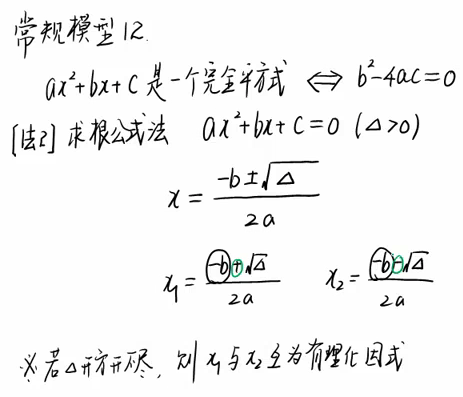 常规模型12.
ax²+bx+c 是一个完全平方式 ⇔ b²-4ac=0
[法2] 求根公式法 ax²+bx+c=0 (△>0)
x = (-b±√△)/(2a)
x₁ = (-b+√△)/(2a) x₂ = (-b-√△)/(2a)
※若△开方开不尽, 则 x₁与x₂互为有理化因式